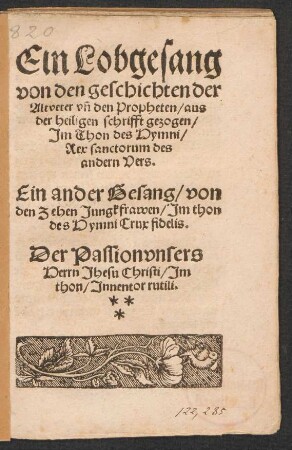 820
Ein Lobgesang
von den geschichten der
Altveter vñ den Propheten/aus
der heiligen schrifft gezogen/
Im Thon des Hymni/
Rex sanctorum des
andern Vers.
Ein ander Gesang/von
den Zehen Jungkfrawen/Im thon
des Hymni Crux fidelis.
Der Passion vnsers
Herrn Jhesu Christi/Im
thon/Inuentor rutili.
* *
*
122,285